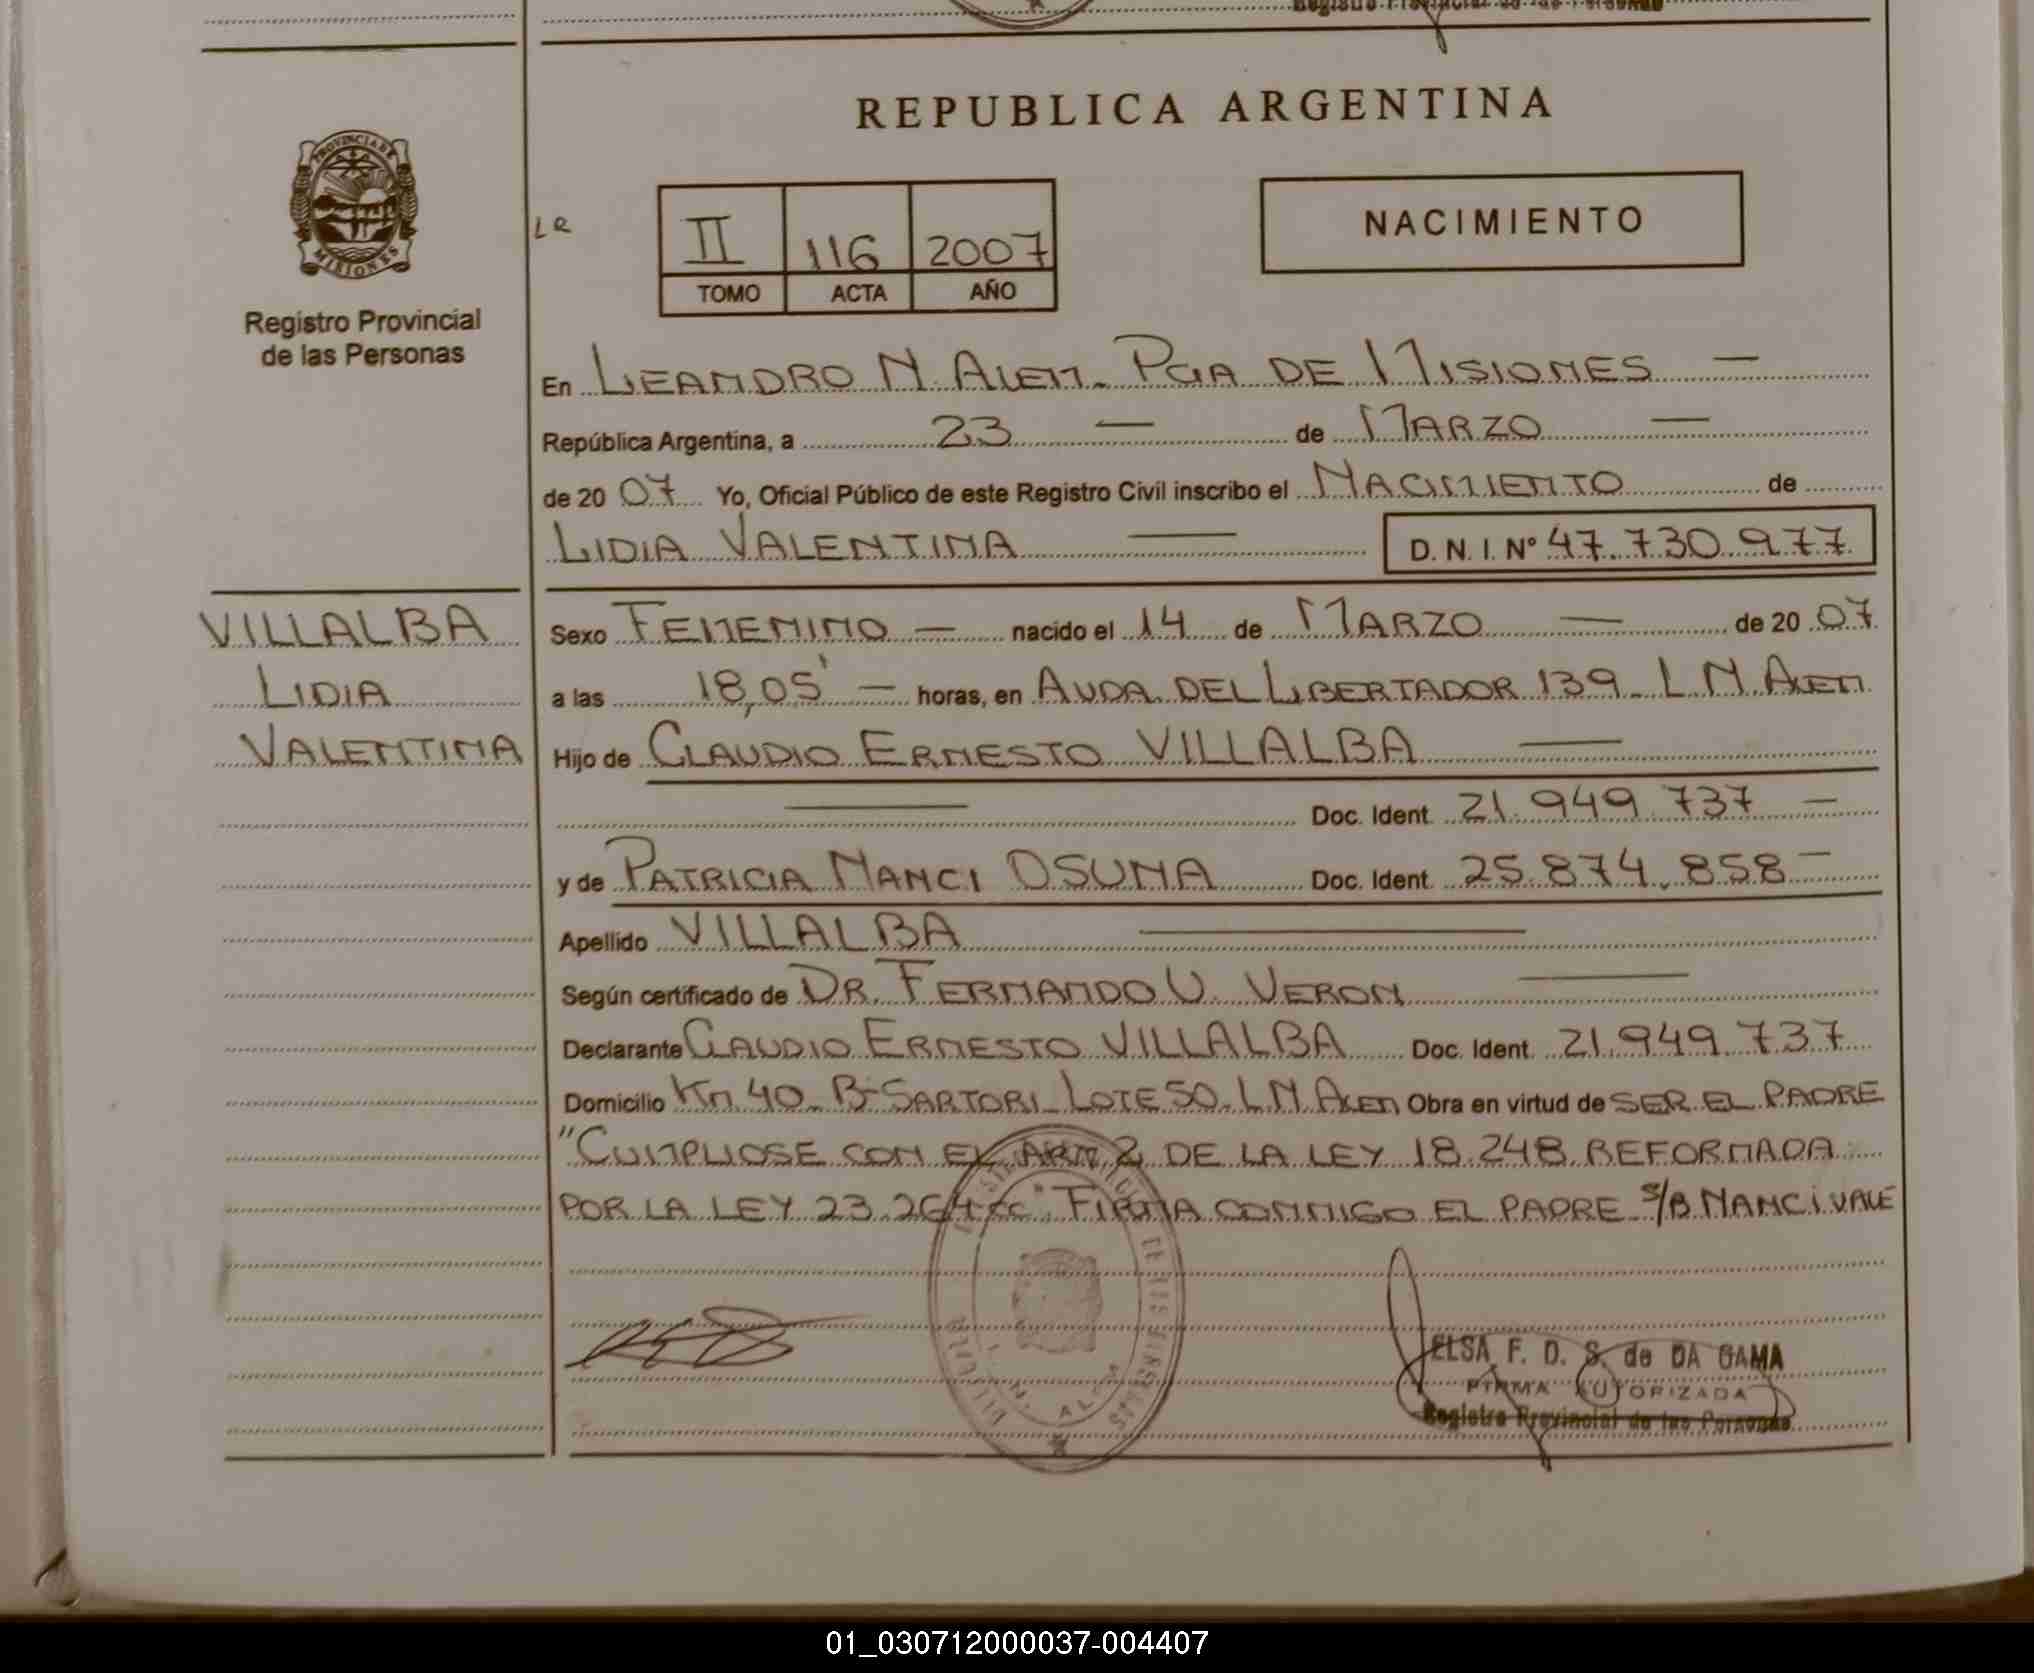 REPUBLICA ARGENTINA
PROVINCIA DE
MISIONES
Registro Provincial
de las Personas
LR
II 116 2007
TOMO ACTA AÑO
NACIMIENTO
En LEANDRO N. ALEM. PCIA DE MISIONES —
República Argentina, a 23 — de MARZO —
de 20 07 Yo, Oficial Público de este Registro Civil inscribo el NACIMIENTO de
LIDIA VALENTINA — D. N. I. Nº 47.730.977
VILLALBA
LIDIA
VALENTINA
Sexo FEMENINO — nacido el 14 de MARZO — de 20 07
a las 18,05' — horas, en AVDA. DEL LIBERTADOR 139 - L N ALEM
Hijo de CLAUDIO ERNESTO VILLALBA —
— Doc. Ident. 21.949.737 —
y de PATRICIA NANCI OSUNA Doc. Ident. 25.874.858 —
Apellido VILLALBA —
Según certificado de DR. FERNANDO V. VERON —
Declarante CLAUDIO ERNESTO VILLALBA Doc. Ident. 21.949.737
Domicilio Km 40 - Bº SARTORI - LOTE 50. L N ALEM Obra en virtud de SER EL PADRE
"CUMPLIOSE CON EL ART. 2 DE LA LEY 18.248 REFORMADA
POR LA LEY 23.264 cc" FIRMA CONMIGO EL PADRE S/B NANCI VALE
L. N. ALEM
ELSA F. D. S. de DA GAMA
FIRMA AUTORIZADA
Registro Provincial de las Personas
01_030712000037-004407